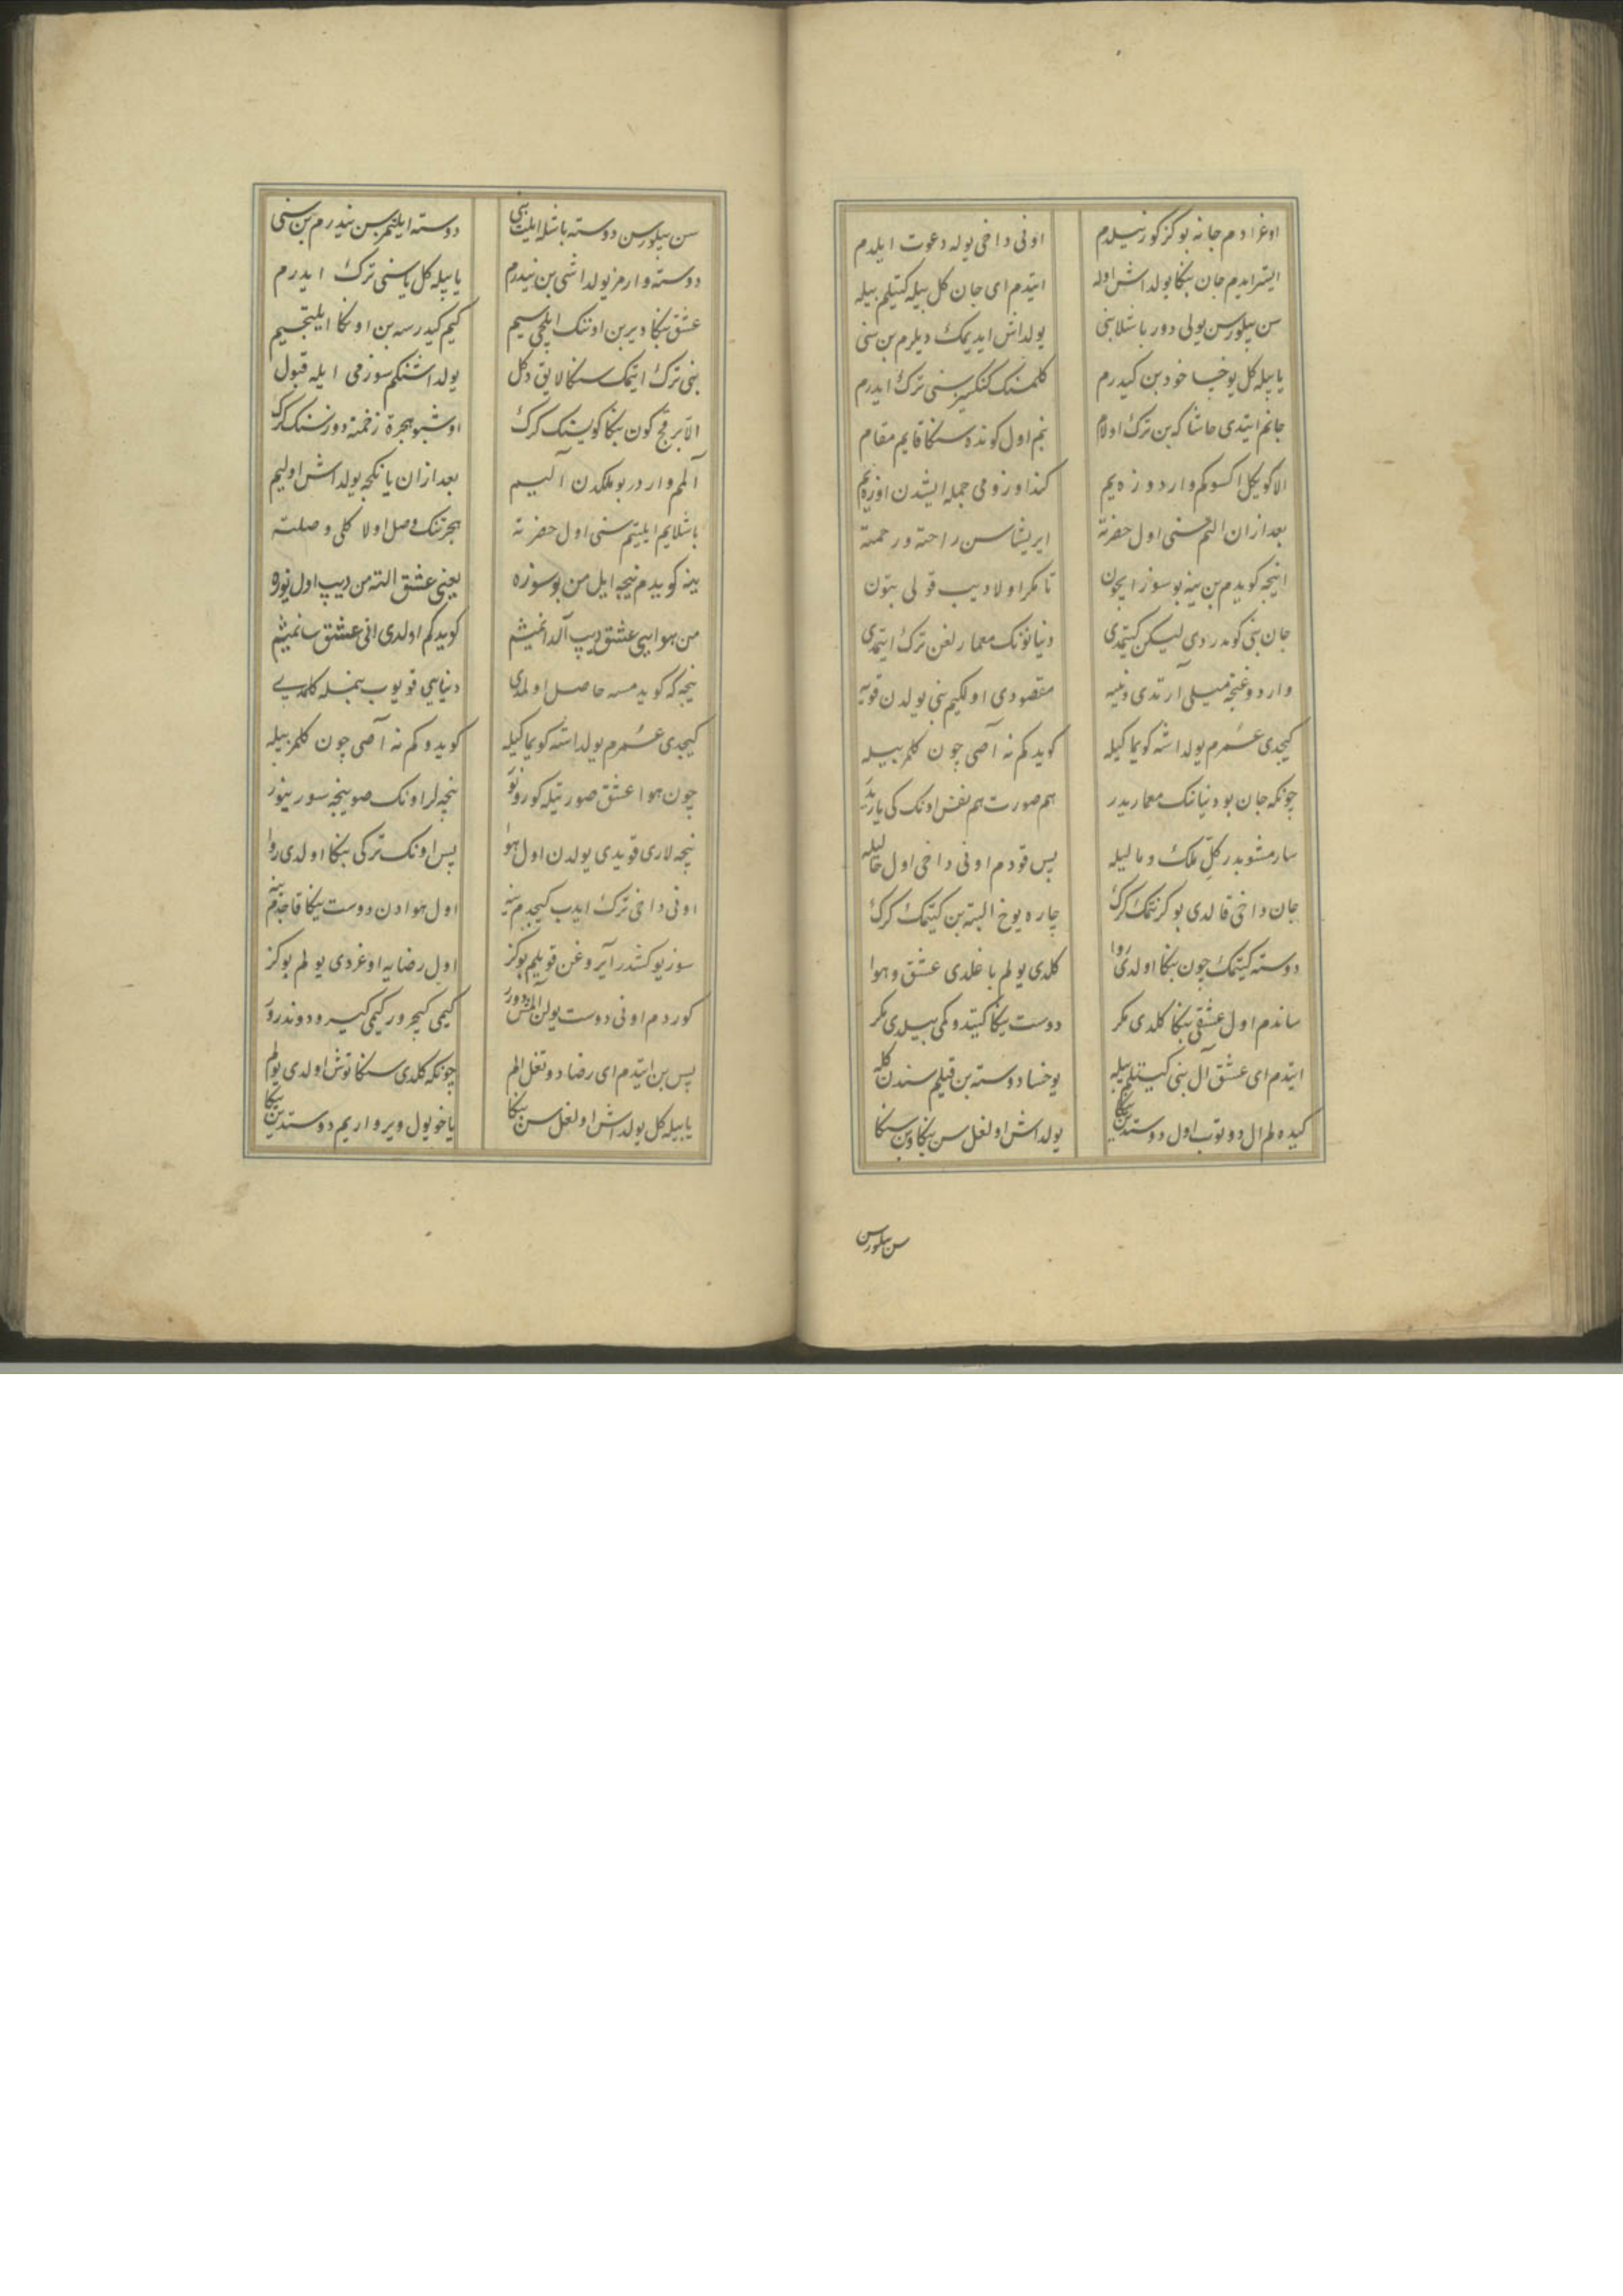 اوغرادم جانه بو کز کوز نیلدم اونی داخی یوله دعوت ایلدم
ایستر ایدم جان بنکا یولداش اوله ایتدم ای جان کل بیله کیتیلم بیله
سن بیلورسن یولی دور باشلا بنی یولداش ایدیمک دیلرم بن سنی
یا بیله کل یوخسا خود بن کیدرم کلمسنک سنی ترک ایدرم
جانم ایتدی حاشا که بن ترک اولام بنم اول کونده سنکا قایم مقام
الا کویکل اکسوکم وارد اوزره یم کند اوزومی جمله ایشدن اوزه یم
بعد ازان التم سنی اول حضرته ایریشاسن راحته و رحمته
اینجه کویدم بن ینه بو سوز ایچون تا مکر اولا دیب قولی بتون
جان بنی کوندردی لیکن کیتمدی دنیانونک معمارلغن ترک ایتمدی
وارد وغنجه میلی آرتدی دنییه مقصودی اولکیم بنی یولدن قویه
کیجدی عمرم یولداشه کویماکیله کویدکم نه آصی چون کلمز بیله
چونکه جان بو دنیانک معماریدر هم صورت هم نفس اونک کی یاریدر
سارمشوبدر کل ملک و مالیله پس قودم اونی داخی اول حالیله
جان داخی قالدی بو کز کتمک کرک چاره یوخ البته بن کیتمک کرک
دوسته کیتمک چون بنکا اولدی روا کلدی یولم باغلدی عشق و هوا
ساندم اول عشقی بنکا کلدی مکر دوست یکا کیتدوکمی بیلدی مکر
ایتدم ای عشق آل بنی کیتیلم بیله یوخسا دوسته بن قیلم سندن کله
کیده لم ال دوتوب اول دوستدین یکا یولداش اولغل سن بنکا و بن سنکا
سن بیلورسن
سن بیلورسن دوسته باشله ایلت بنی دوسته ایلتمزسن نیدرم بن سنی
دوسته وارمز یولداشی بن نیدرم یا بیله کل یا سنی ترک ایدرم
عشق بنکا دیر بن اوننک ایلچیسیم کیم کیدرسه بن اونکا ایلتجیم
بنی ترک ایتمک سنکا لایق دکل یولداشنکم سوزمی ایله قبول
الا بر قچ کون بنکا کویمنک کرک اوشبو هجره زخمنه دوزسنک کرک
آلمم وار در بو ملکدن آلیم بعد ازان یانکجه یولداش اولیم
باشلایم ایلتیم سنی اول حضرته هجرتنک وصل اولا کلی وصلته
ینه کویدم نیچه ایل من بو سوزه یعنی عشق التمن دیب اول یوزه
من هوایی عشق دیب آلدانمیشم کویدکم اولدی انی عشق سانمیشم
نیجه که کویدمسه حاصل اولمدی دنیایی قویوب بنمله کلمدی
کیجدی عمرم یولداشه کویماکیله کویدوکم نه آصی چون کلمز بیله
چون هوا عشق صورتیله کورونو نیجه لر اونک صوینجه سورینور
نیجه لاری قویدی یولدن اول هوا پس اونک ترکی بنکا اولدی روا
اونی داخی ترک ایدب کیجدم ینه اول هوادن دوست یکا قاچدم ینه
سوز یوکشدر آیروغن قویلم بو کز اول رضایه اوغردی یولم بو کز
کوردم اونی دوست یولن آلمش دورر کیمی کیچرور کیمی کیرو دوندرور
پس بن ایتدم ای رضا دوتغل الم چونکه کلدی سنکا توش اولدی یولم
یا بیله کل یولداش اولغل سن بنکا یا خو یول ویر واریم دوستدین یکا